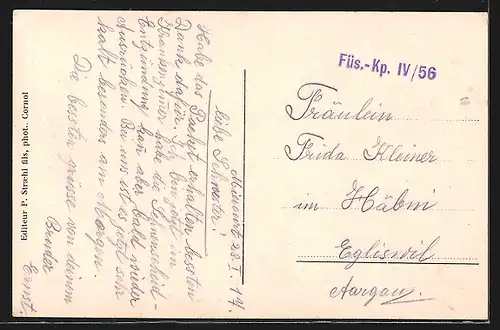 Miécourt 23. I. 17.
Liebe Schwester!
Habe das Packet erhalten besten
Dank dafür. Ich bin jetzt im
Krankenzimer habe die Sehnenscheid-
Entzündung kan aber bald wieder
Ausrücken. Bei uns ist es jetzt sehr
kalt besonders am Morgen.
Die besten grüsse von deinem
Bruder
Ernst.
Editeur P. Stræhl fils, phot. Cornol
Füs.-Kp. IV/56
Fräulein
Frida Kleiner
im Häbni
Egliswil
Aargau.